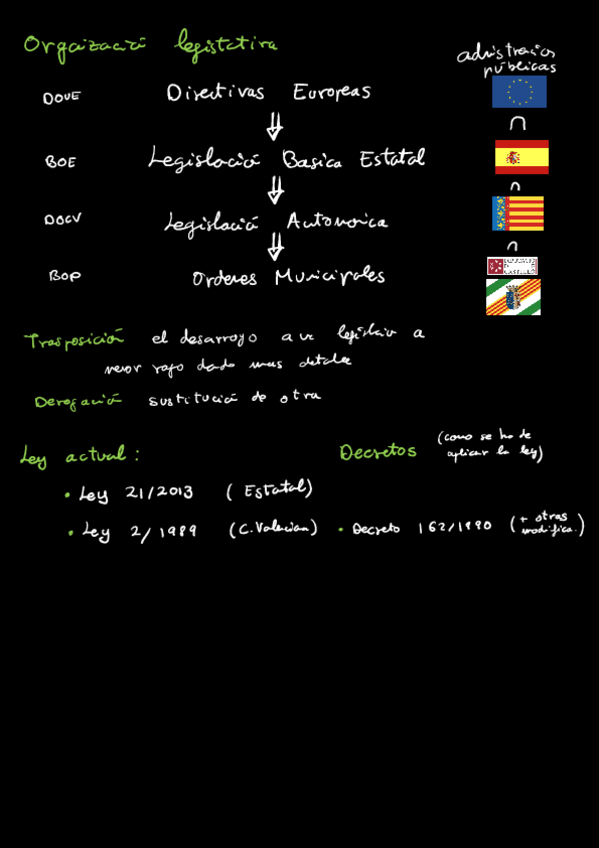 Orgaizació legistativa
admistracios
públicas
DOUE Directivas Europeas
BOE Legislació Basica Estatal
DOCV Legislació Autonomica
BOP Ordenes Municipales
Trasposición el desarroyo a legislacio a
menor dado mas detalle
Derogació sustitució de otra
Ley actual:
Decretos (como se ha de
aplicar la ley)
• Ley 21/2013 (Estatal)
• Ley 2/1989 (C. Valencian)
• Decreto 162/1990 (+ otras
modifica.)